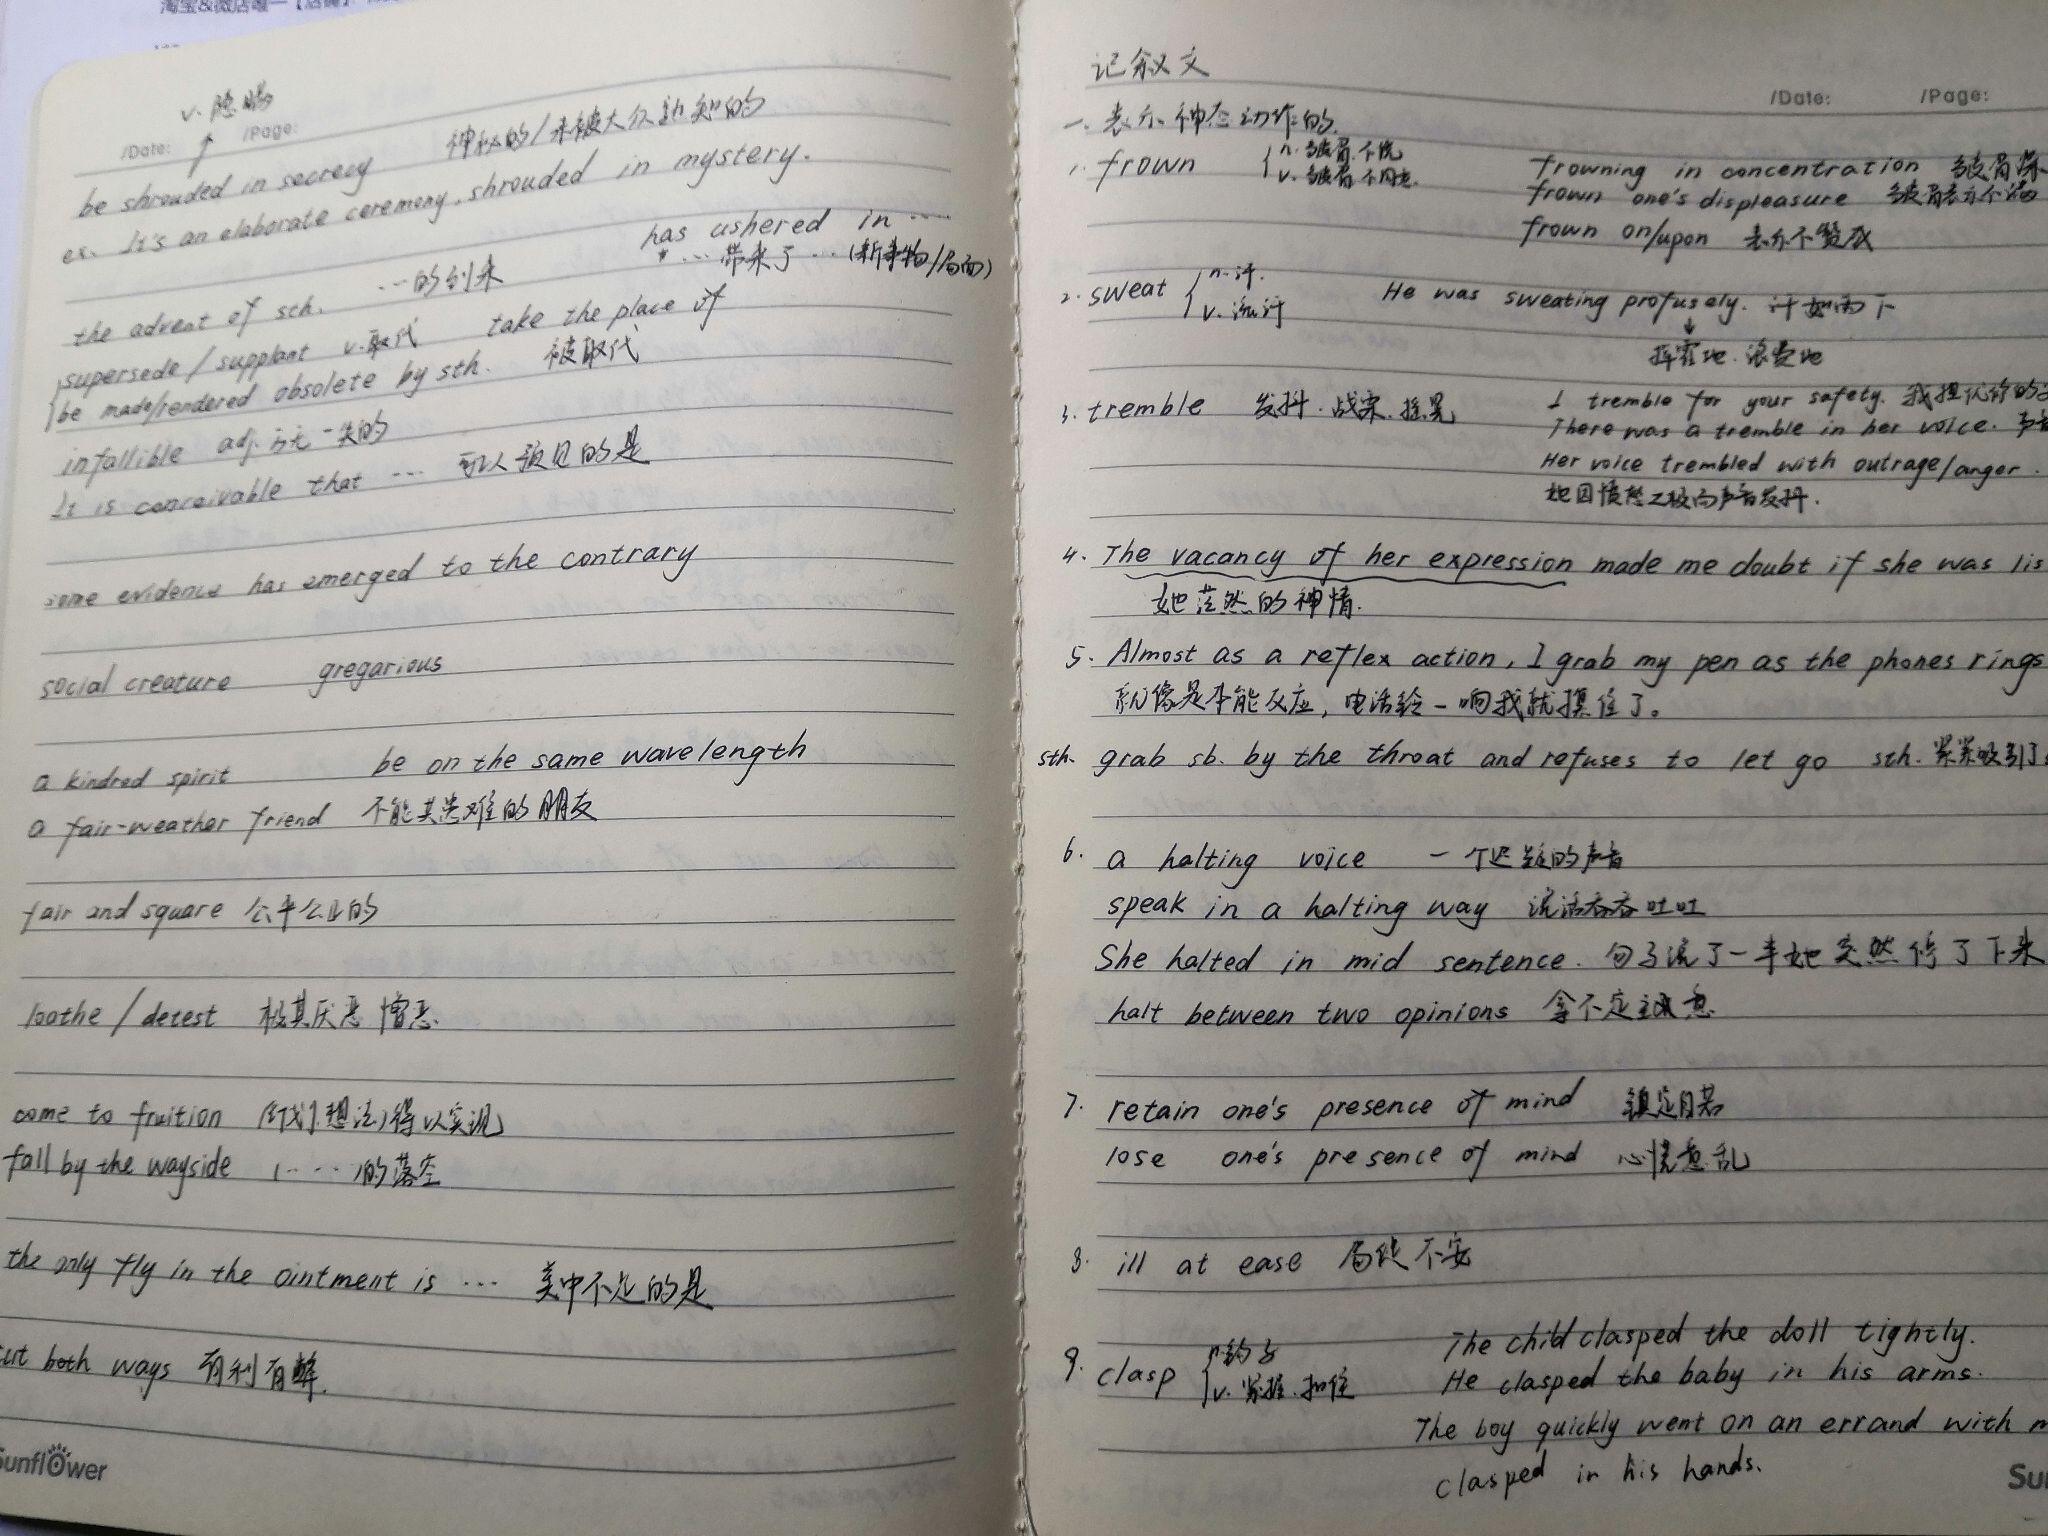 v. 隐瞒
/Date: /Page:
be shrouded in secrecy 神秘的/未被大众所知的
ex. It's an elaborate ceremony, shrouded in mystery.
has ushered in ……
the advent of sth. …的到来
…带来了…(新事物/局面)
supersede / supplant v.取代 take the place of
be made/rendered obsolete by sth. 被取代
infallible adj. 万无一失的
It is conceivable that … 可以预见的是
some evidence has emerged to the contrary
social creature gregarious
a kindred spirit be on the same wavelength
a fair-weather friend 不能共患难的朋友
fair and square 公平公正的
loathe / detest 极其厌恶 憎恶.
come to fruition (计划,想法)得以实现
fall by the wayside (……)的落空
the only fly in the ointment is … 美中不足的是
cut both ways 有利有弊.
Sunflower
记叙文
/Date: /Page:
一. 表示神态动作的
1. frown n. 皱眉.不悦
v. 皱眉.不同意.
frowning in concentration 皱眉
frown one's displeasure 皱眉表示不满
frown on/upon 表示不赞成
2. sweat n.汗.
v. 流汗
He was sweating profusely. 汗如雨下
挥霍地.浪费地
3. tremble 发抖.战栗.摇晃
I tremble for your safety. 我担忧你的
There was a tremble in her voice.
Her voice trembled with outrage/anger.
她因愤怒之极而声音发抖.
4. The vacancy of her expression made me doubt if she was lis
她茫然的神情.
5. Almost as a reflex action, I grab my pen as the phones rings
就像是本能反应, 电话铃一响我就摸住了。
sth. grab sb. by the throat and refuses to let go sth. 紧紧吸引了
6. a halting voice 一个迟疑的声音
speak in a halting way 说话吞吞吐吐
She halted in mid sentence. 句子说了一半她突然停了下来
halt between two opinions 拿不定主意
7. retain one's presence of mind 镇定自若
lose one's presence of mind 心慌意乱
8. ill at ease 局促不安
9. clasp n.钩子
v. 紧握.扣住
The child clasped the doll tightly.
He clasped the baby in his arms.
The boy quickly went on an errand with m
clasped in his hands.
Su